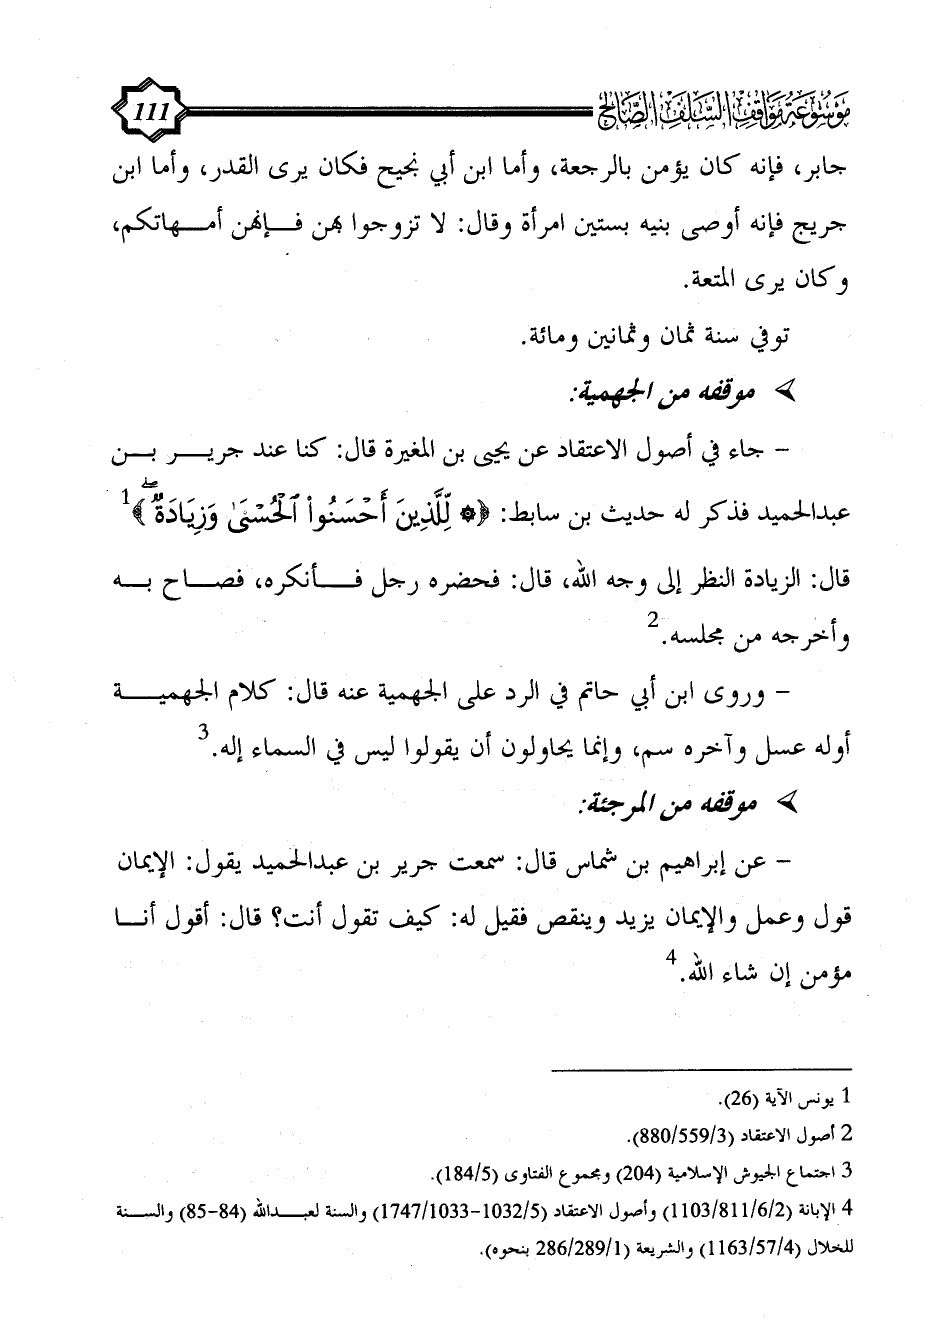 موسوعة مواقف السلف الصالح
111
جابر، فإنه كان يؤمن بالرجعة، وأما ابن أبي نجيح فكان يرى القدر، وأما ابن
جريج فإنه أوصى بنيه بستين امرأة وقال: لا تزوجوا بهن فإنهن أمهاتكم،
وكان يرى المتعة.
توفي سنة ثمان وثمانين ومائة.
موقفه من الجهمية:
- جاء في أصول الاعتقاد عن يحيى بن المغيرة قال: كنا عند جرير بن
عبدالحميد فذكر له حديث بن سابط: ﴿۞ لِّلَّذِينَ أَحْسَنُواْ ٱلْحُسْنَىٰ وَزِيَادَةٌۖ﴾1
قال: الزيادة النظر إلى وجه الله، قال: فحضره رجل فأنكره، فصاح به
وأخرجه من مجلسه.2
- وروى ابن أبي حاتم في الرد على الجهمية عنه قال: كلام الجهمية
أوله عسل وآخره سم، وإنما يحاولون أن يقولوا ليس في السماء إله.3
موقفه من المرجئة:
- عن إبراهيم بن شماس قال: سمعت جرير بن عبدالحميد يقول: الإيمان
قول وعمل والإيمان يزيد وينقص فقيل له: كيف تقول أنت؟ قال: أقول أنا
مؤمن إن شاء الله.4
1 يونس الآية (26).
2 أصول الاعتقاد (880/559/3).
3 اجتماع الجيوش الإسلامية (204) ومجموع الفتاوى (184/5).
4 الإبانة (1103/811/6/2) وأصول الاعتقاد (1747/1033-1032/5) والسنة لعبدالله (84-85) والسنة
للخلال (1163/57/4) والشريعة (286/289/1 بنحوه).